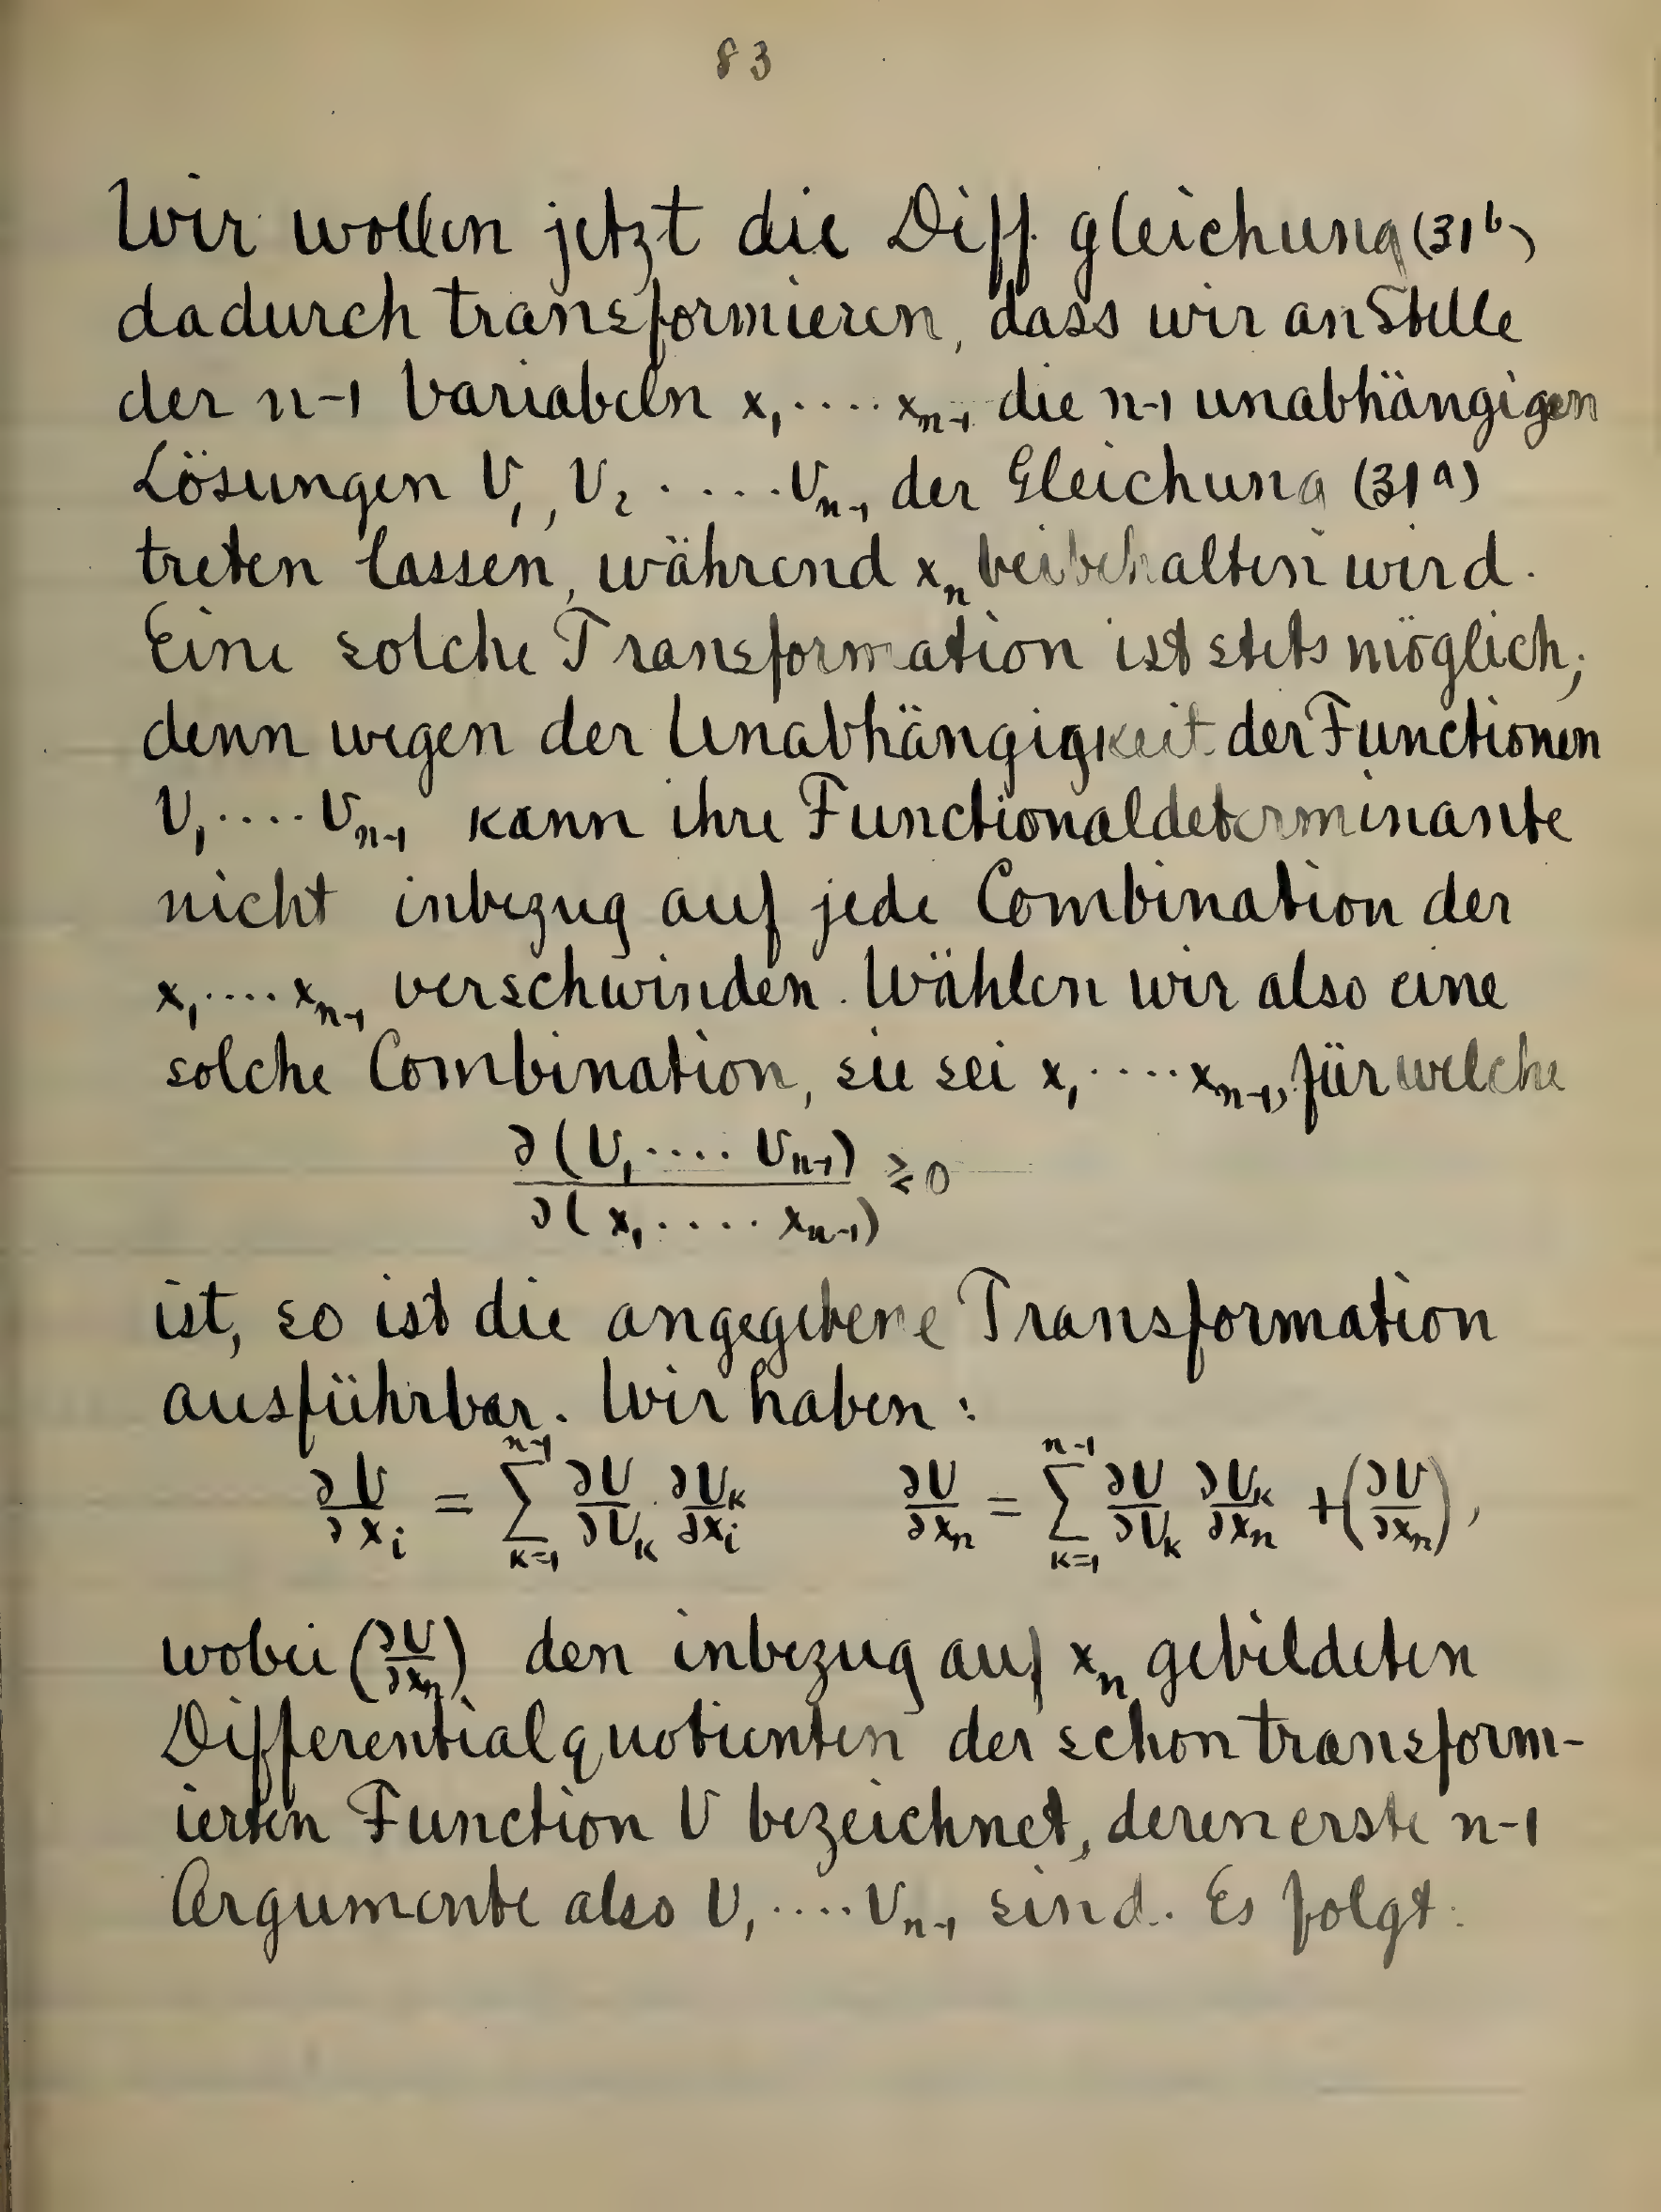 83
Wir wollen jetzt die Diff. gleichung (31ᵇ)
dadurch transformieren, dass wir an Stelle
der n-1 Variabeln x₁ ···· xₙ₋₁ die n-1 unabhängigen
Lösungen U₁, U₂ ····· Uₙ₋₁ der Gleichung (31ᵃ)
treten lassen, während xₙ beibehalten wird.
Eine solche Transformation ist stets möglich;
denn wegen der Unabhängigkeit der Functionen
U₁ ···· Uₙ₋₁ kann ihre Functionaldeterminante
nicht inbezug auf jede Combination der
x₁ ···· xₙ₋₁ verschwinden. Wählen wir also eine
solche Combination, sie sei x₁ ···· xₙ₋₁, für welche
∂(U₁ ···· Uₙ₋₁) / ∂(x₁ ···· xₙ₋₁) ≷ 0
ist, so ist die angegebene Transformation
ausführbar. Wir haben:
∂U/∂xᵢ = ∑ₖ₌₁ⁿ⁻¹ ∂U/∂Uₖ · ∂Uₖ/∂xᵢ ∂U/∂xₙ = ∑ₖ₌₁ⁿ⁻¹ ∂U/∂Uₖ ∂Uₖ/∂xₙ + (∂U/∂xₙ),
wobei (∂U/∂xₙ) den inbezug auf xₙ gebildeten
Differentialquotienten der schon transform-
ierten Function U bezeichnet, deren erste n-1
Argumente also U₁ ···· Uₙ₋₁ sind. Es folgt: